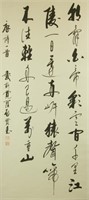 朝辭白帝彩雲間千里江
陵一日還兩岸猿聲啼
不住輕舟已過萬重山
唐詩一首